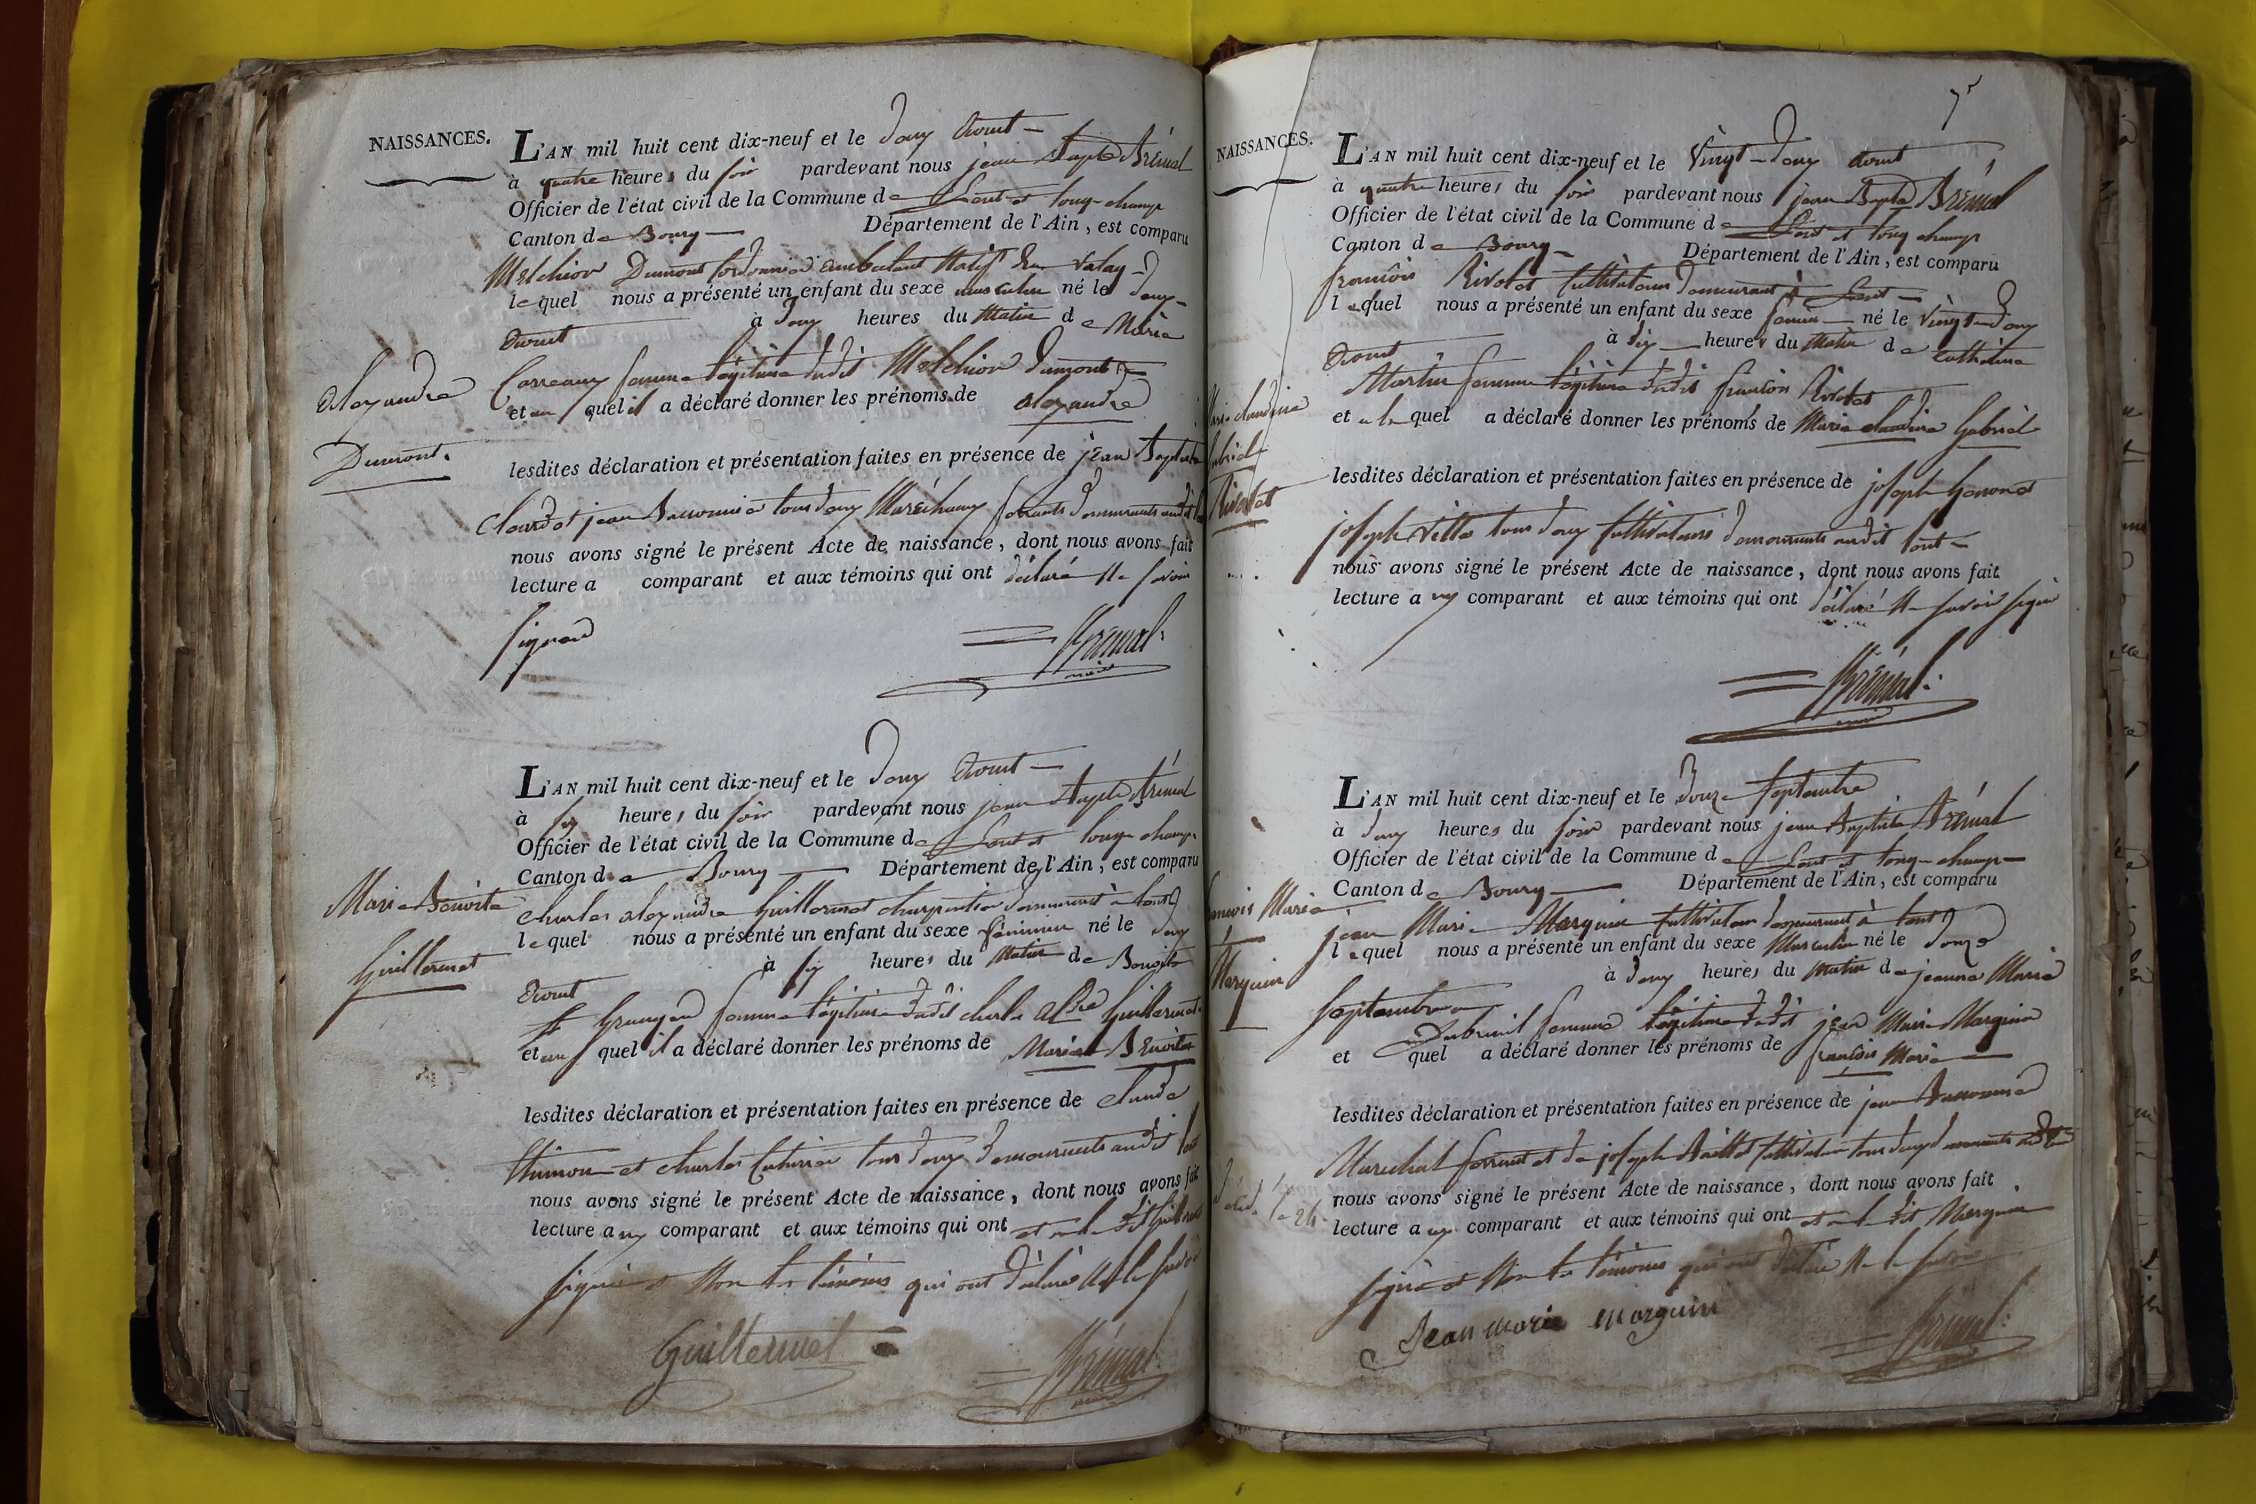 NAISSANCES.
L'AN mil huit cent dix-neuf et le deux Aoust
à quatre heures du soir pardevant nous jean Baptte Brémal
Officier de l'état civil de la Commune de Lent et longchamp
Canton de Bourg Département de l'Ain, est comparu
Melchior Dumont cordonnier ambulant
lequel nous a présenté un enfant du sexe masculin né le deux
Aoust à deux heures du Matin de Marie
femme légitime dudit Melchior dumont
et auquel il a déclaré donner les prénoms de alexandre
alexandre
Dumont.
lesdites déclaration et présentation faites en présence de jean Baptiste
jean tous deux Maréchaux ferrants demeurants audit
nous avons signé le présent Acte de naissance, dont nous avons fait
lecture a comparant et aux témoins qui ont déclaré Ne savoir
signer
Brémal
maire
L'AN mil huit cent dix-neuf et le deux Aoust
à six heures du soir pardevant nous jean Baptte Brémal
Officier de l'état civil de la Commune de Lent et longchamp
Canton de Bourg Département de l'Ain, est comparu
charles alexandre Guillermet charpentier demeurant à lent
lequel nous a présenté un enfant du sexe féminin né le deux
Aoust à six heures du Matin de Benoite
femme légitime dudit charles Guillermet
et auquel il a déclaré donner les prénoms de Marie Benoite
Marie Benoite
Guillermet
lesdites déclaration et présentation faites en présence de claude
et charles tous deux demeurants audit lent
nous avons signé le présent Acte de naissance, dont nous avons fait
lecture aux comparant et aux témoins qui ont et ledit Guillermet
signé et Non les témoins qui ont déclaré Ne le savoir
Guillermet
Brémal
maire
NAISSANCES.
L'AN mil huit cent dix-neuf et le Vingt-deux Aoust
à quatre heures du soir pardevant nous jean Baptte Brémal
Officier de l'état civil de la Commune de Lent et longchamp
Canton de Bourg Département de l'Ain, est comparu
françois Rivolet cultivateur demeurant à Lent
lequel nous a présenté un enfant du sexe né le Vingt-deux
Aoust à dix heures du Matin de catherine
Martin femme légitime dudit françois Rivolet
et a le quel a déclaré donner les prénoms de Marie claudine Gabriel
Rivolet
lesdites déclaration et présentation faites en présence de joseph
joseph tous deux cultivateurs demeurants audit lent
nous avons signé le présent Acte de naissance, dont nous avons fait
lecture aux comparant et aux témoins qui ont déclaré Ne savoir signer
Brémal
maire
L'AN mil huit cent dix-neuf et le Douze Septembre
à deux heures du soir pardevant nous jean Baptiste Brémal
Officier de l'état civil de la Commune de Lent et longchamp
Canton de Bourg Département de l'Ain, est comparu
jean Marie Marguin cultivateur demeurant à lent
lequel nous a présenté un enfant du sexe Masculin né le douze
Septembre à deux heures du Matin de jeanne Marie
Dubreuil femme légitime dudit jean Marie Marguin
et quel a déclaré donner les prénoms de françois Marie
Marie
Marguin
lesdites déclaration et présentation faites en présence de jean
Marechal ferrant et de joseph cultivateur tous deux demeurants
nous avons signé le présent Acte de naissance, dont nous avons fait
lecture aux comparant et aux témoins qui ont et ledit Marguin
signé et Non les témoins qui ont déclaré Ne le savoir
Jean marie marguin
Brémal